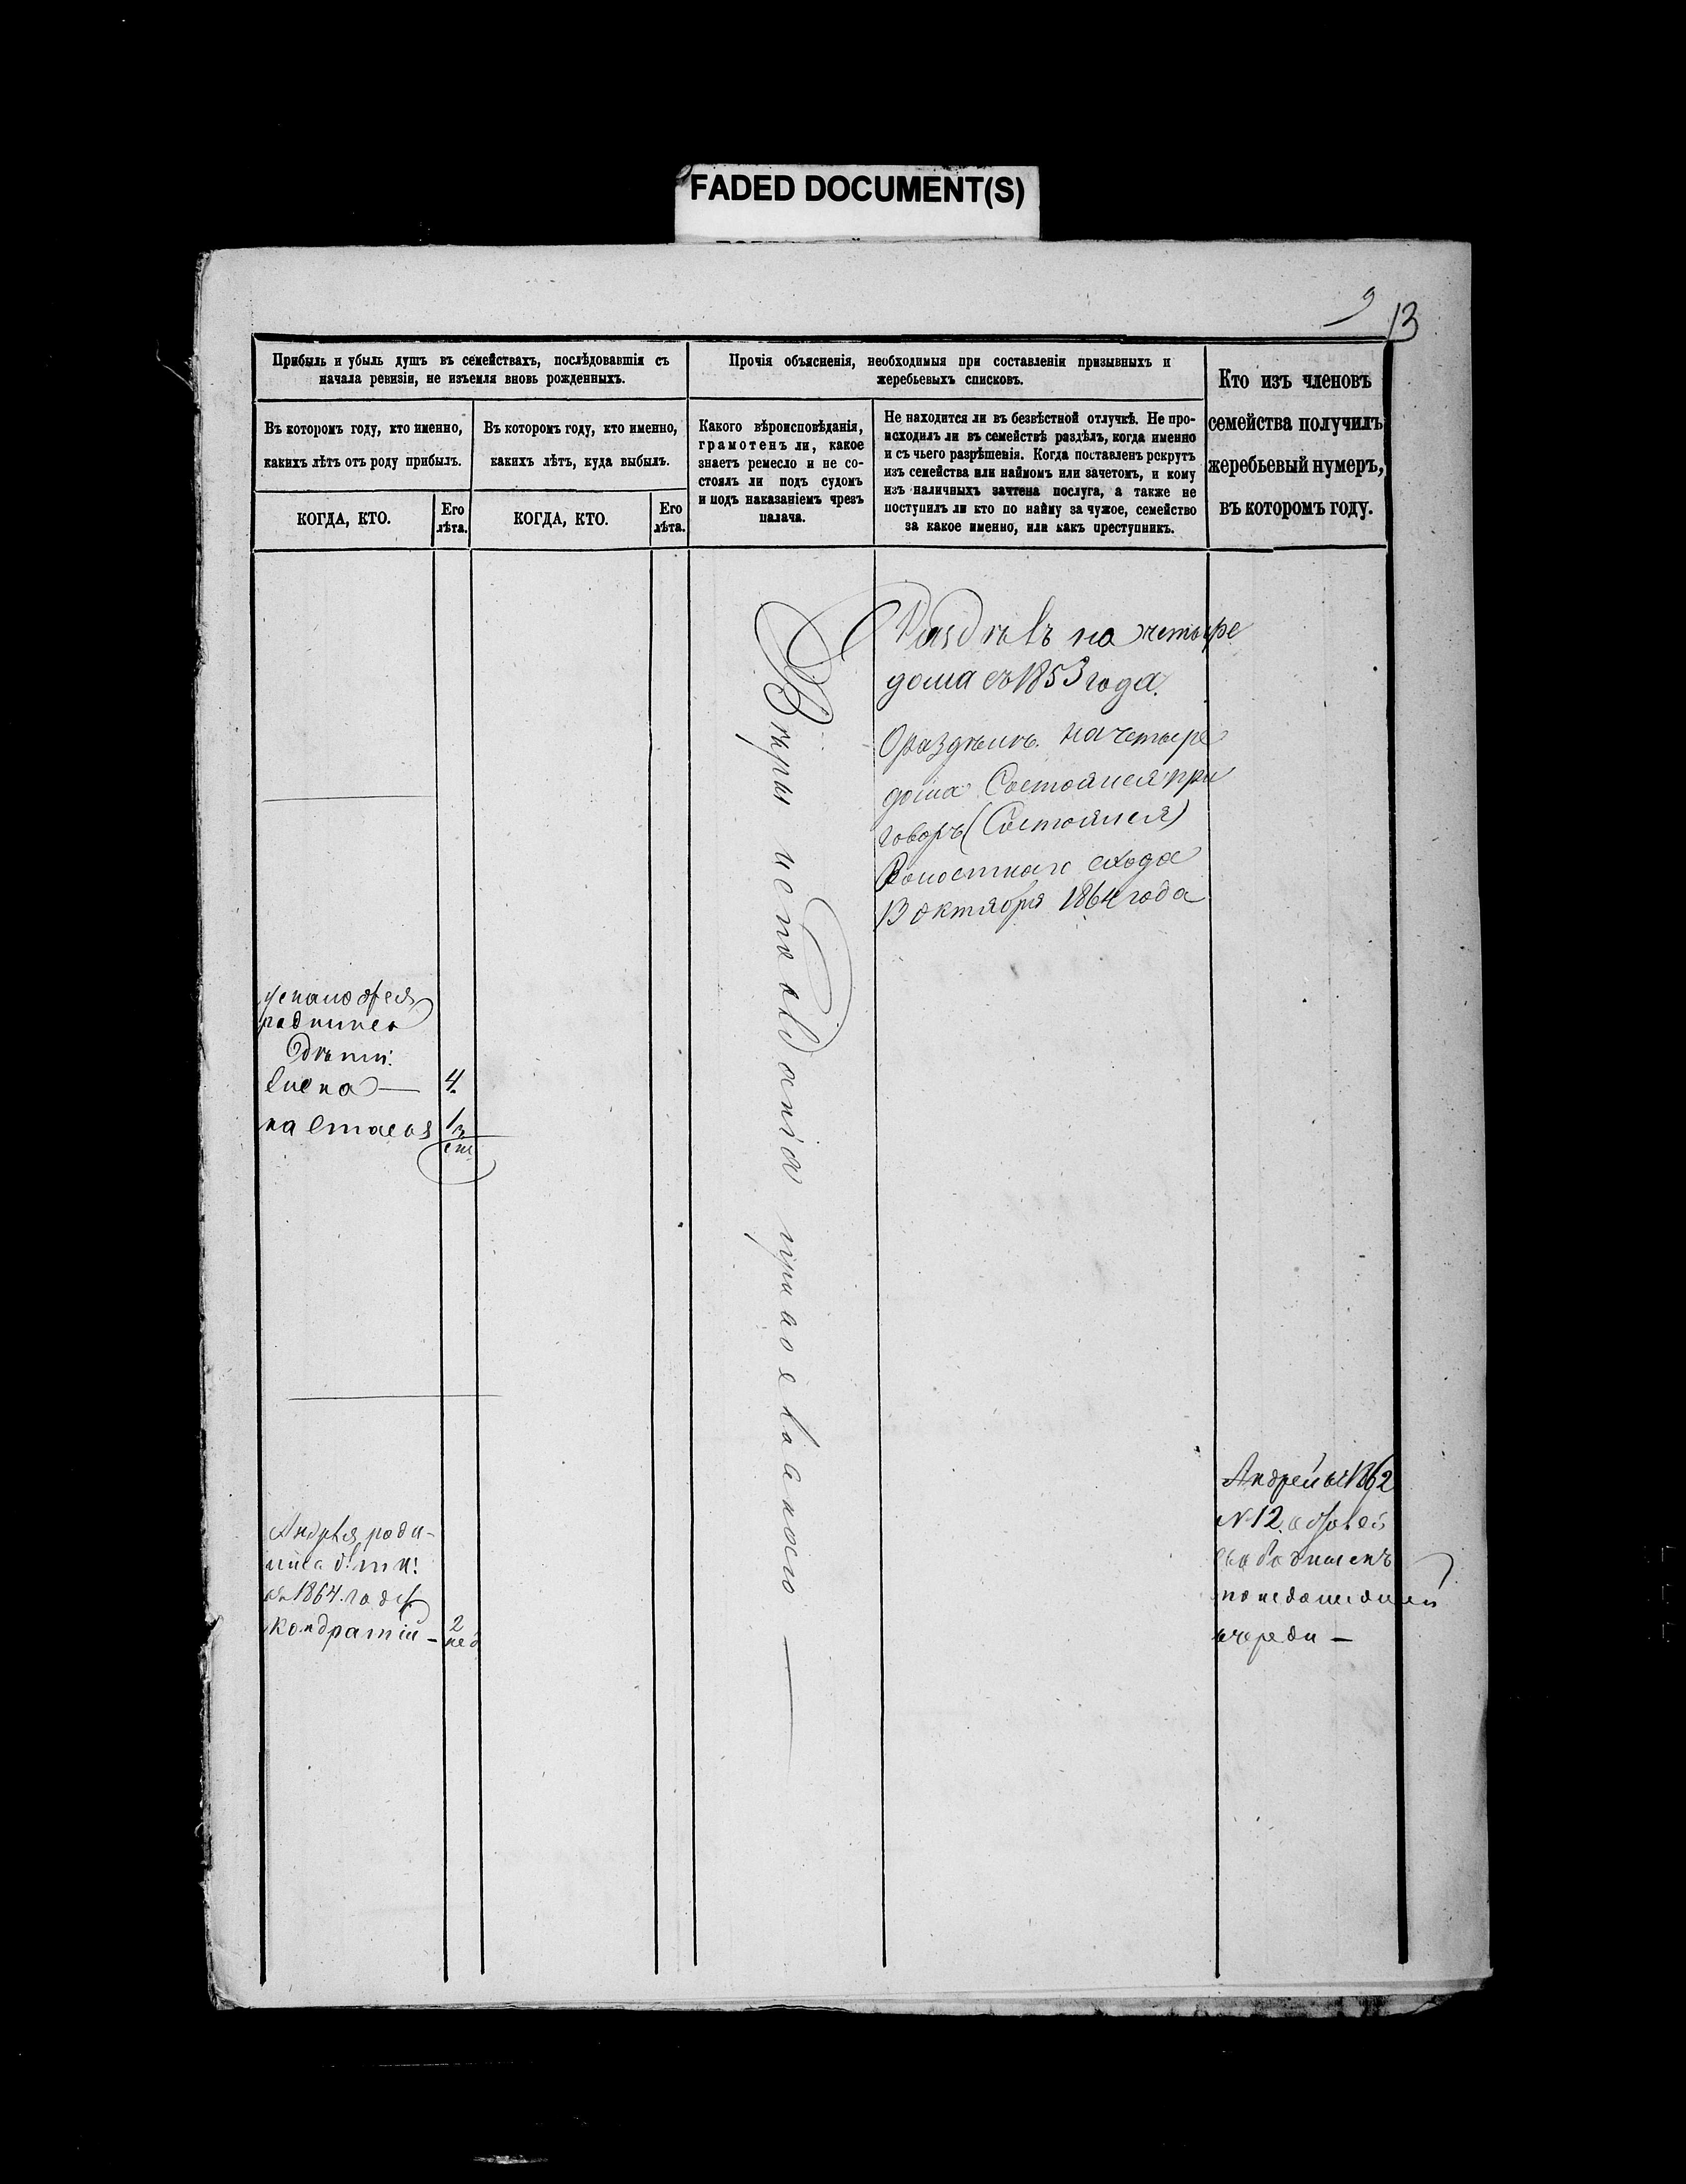 FADED DOCUMENT(S)
9
13
Прибыль и убыль душъ въ семействахъ, послѣдовавшія съ
начала ревизіи, не изъемля вновь рожденныхъ.
Въ которомъ году, кто именно,
какихъ лѣтъ отъ роду прибылъ.
КОГДА, КТО.
Его
лѣта.
Въ которомъ году, кто именно,
какихъ лѣтъ, куда выбылъ.
КОГДА, КТО.
Его
лѣта.
Прочія объясненія, необходимыя при составленіи призывныхъ и
жеребьевыхъ списковъ.
Какого вѣроисповѣданія,
грамотенъ ли, какое
знаетъ ремесло и не со-
стоялъ ли подъ судомъ
и подъ наказаніемъ чрезъ
палача.
Не находится ли въ безвѣстной отлучкѣ. Не про-
исходилъ ли въ семействѣ раздѣлъ, когда именно
и съ чьего разрѣшенія. Когда поставленъ рекрутъ
изъ семейства или наймомъ или зачетомъ, и кому
изъ наличныхъ зачтена послуга, а также не
поступилъ ли кто по найму за чужое, семейство
за какое именно, или какъ преступникъ.
Кто изъ членовъ
семейства получилъ
жеребьевый нумеръ,
въ которомъ году.
родились
Дѣти:
Елена — 4
Настасья 1/2
Андрея роди-
лись дѣти:
въ 1864 году
Кондратій - 2
нед
Вѣры исповѣданія православнаго —
Раздѣлъ на четыре
дома съ 1853 года.
О раздѣлѣ на четыре
дома Состоялся при
говоръ (Состоялся)
Волостнаго схода
13 октября 1864 года
Андрей въ 1862
№ 12.
очереди —